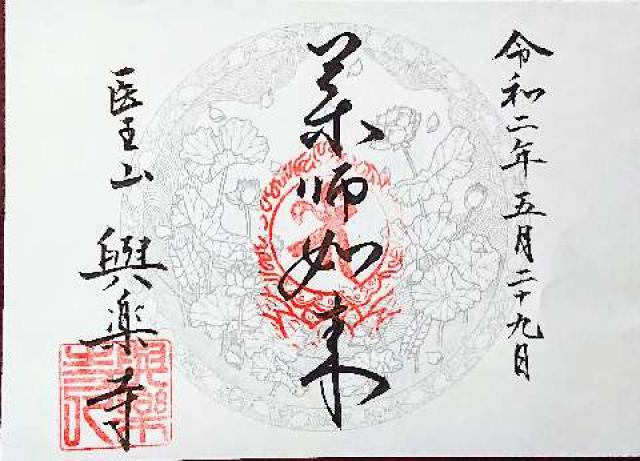 令和二年五月二十九日
薬師如来
医王山 興楽寺